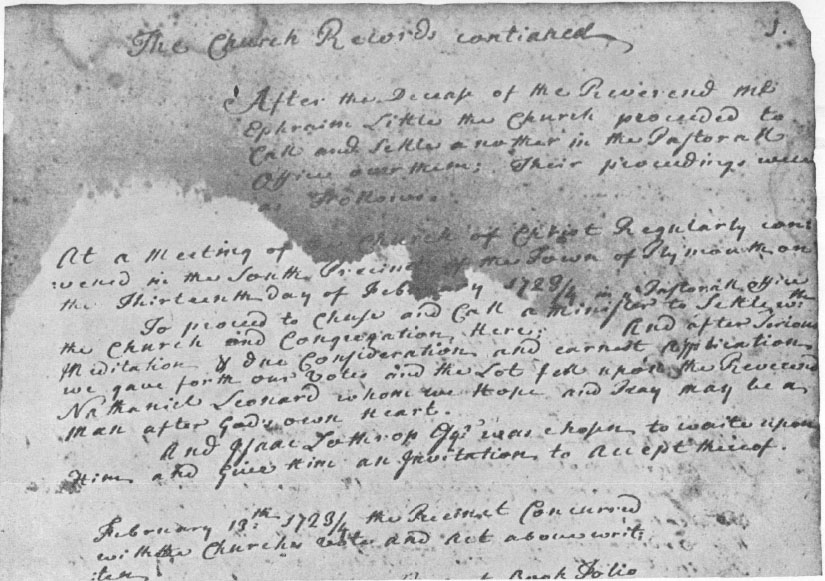 The Church Records continued
1.
After the Decease of the Reverend mr
Ephraim Little the Church proceeded to
Call and Settle another in the Pastorall
Office over them; Their proceedings were
as Follows.
At a Meeting of a Church of Christ Regularly con
vened in the South Precinct of the Town of Plymouth on
the Thirteenth day of February 1723/4 in Pastorall Office
To proceed to Chuse and Call a minister to Settle with
the Church and Congregation Here; And after Serious
Meditation & due Consideration and earnest Application
we gave forth our votes and the Lot fell upon the Reverend
Nathaniel Leonard whom we Hope and Pray may be a
Man after God's own Heart.
And Isaac Lothrop Esqr was chosen to waite upon
Him and Give Him an Invitation to Accept thereof.
February 13th: 1723/4 the Precinct Concurred
with the Churches vote and Act above writ:
ten
Book Folio